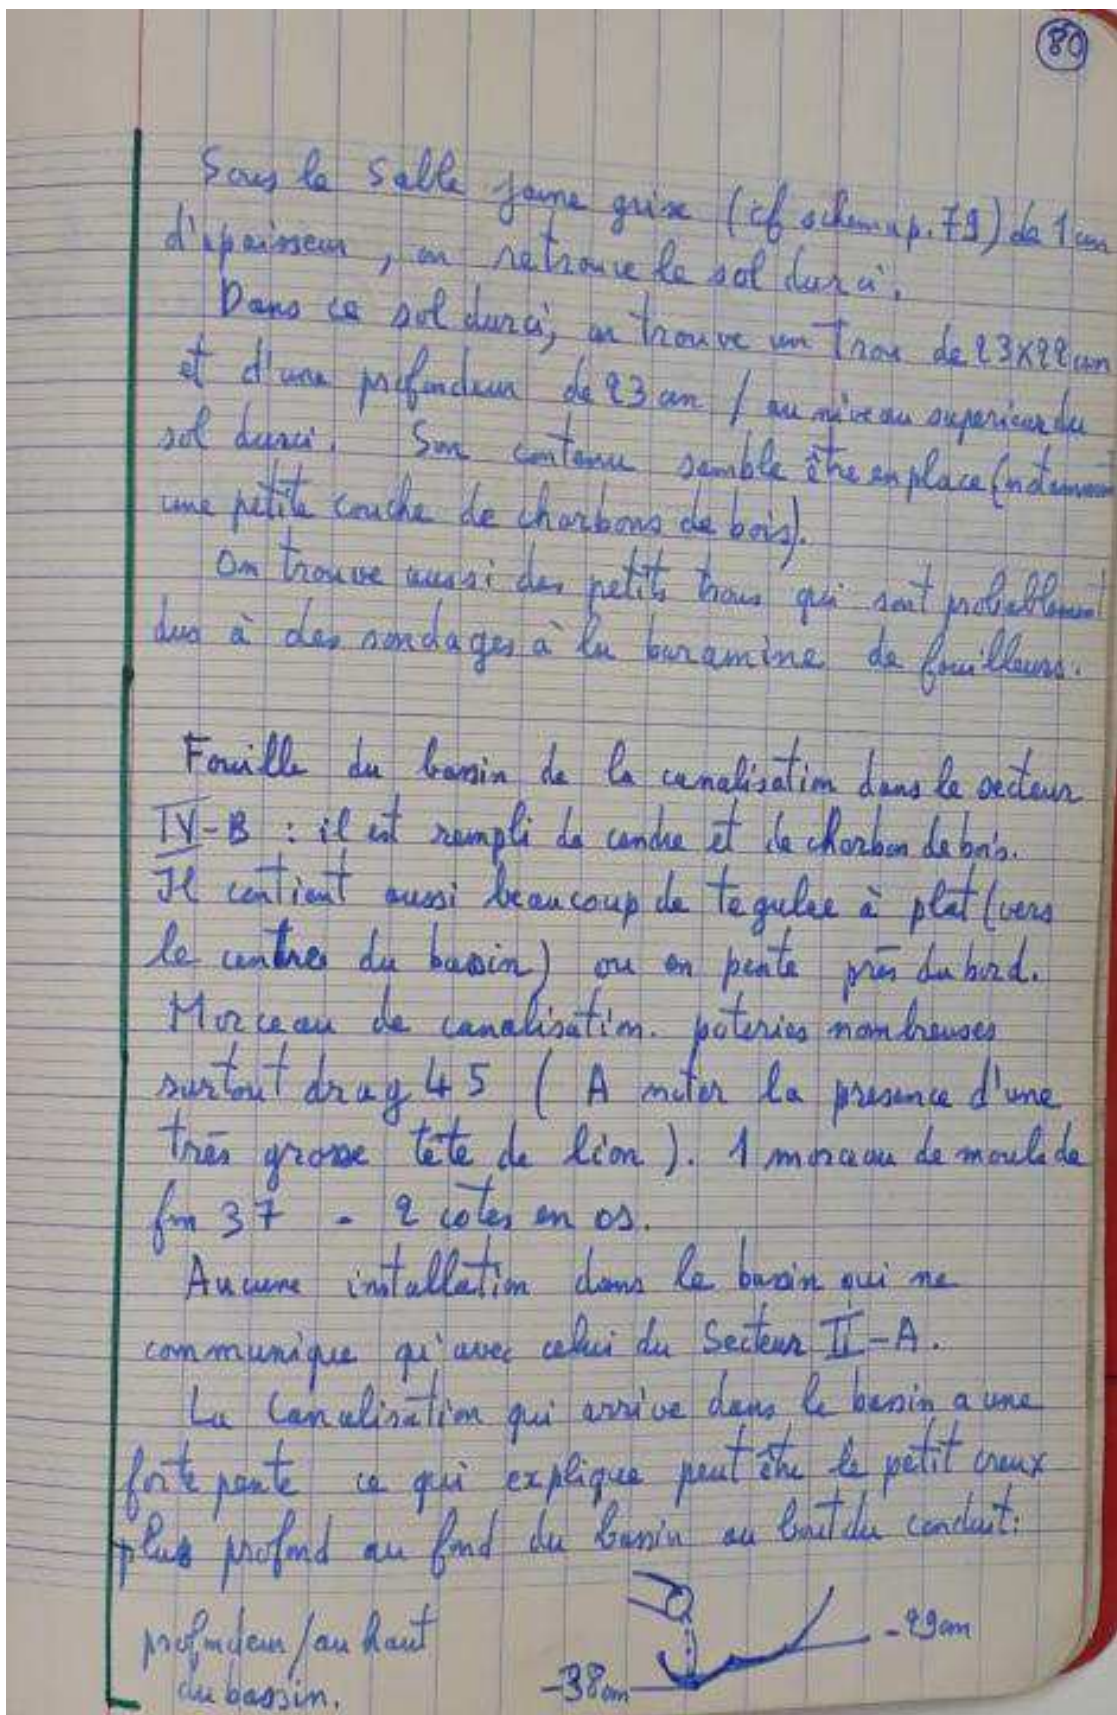 80
Sous le sable jaune grise (cf schema p. 79) de 1 cm
d'epaisseur, on retrouve le sol durci.
Dans ce sol durci, on trouve un trou de 23x22 cm
et d'une profondeur de 23 cm / au niveau superieur du
sol durci. Son contenu semble être en place (notamment
une petite couche de charbons de bois).
On trouve aussi des petits trous qui sont probablement
dus à des sondages à la baramine de fouilleurs.
Fouille du bassin de la canalisation dans le secteur
IV-B : il est rempli de cendre et de charbon de bois.
Il contient aussi beaucoup de tegulae à plat (vers
le centre du bassin) ou en pente près du bord.
Morceau de canalisation. poteries nombreuses
surtout drag 45 ( A noter la présence d'une
très grosse tête de lion ). 1 morceau de moule de
fm 37 - 2 cotes en os.
Aucune installation dans le bassin qui ne
communique qu'avec celui du Secteur II-A.
La Canalisation qui arrive dans le bassin a une
forte pente ce qui explique peut être le petit creux
plus profond au fond du bassin au bout du conduit:
profondeur / au haut
du bassin.
-38cm
-29cm